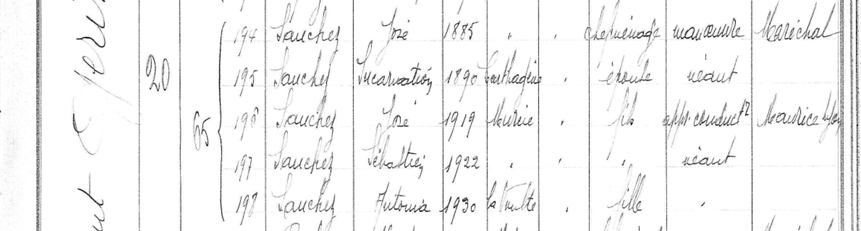 20 65
194 Sanchez José 1885 " " chef ménage manœuvre Maréchal
195 Sanchez Incarnation 1890 Carthagène " épouse néant
196 Sanchez José 1919 Murcie " fils app. conductr Maurice
197 Sanchez Sébastien 1922 " " " néant
198 Sanchez Antonia 1930 La Voulte " fille "